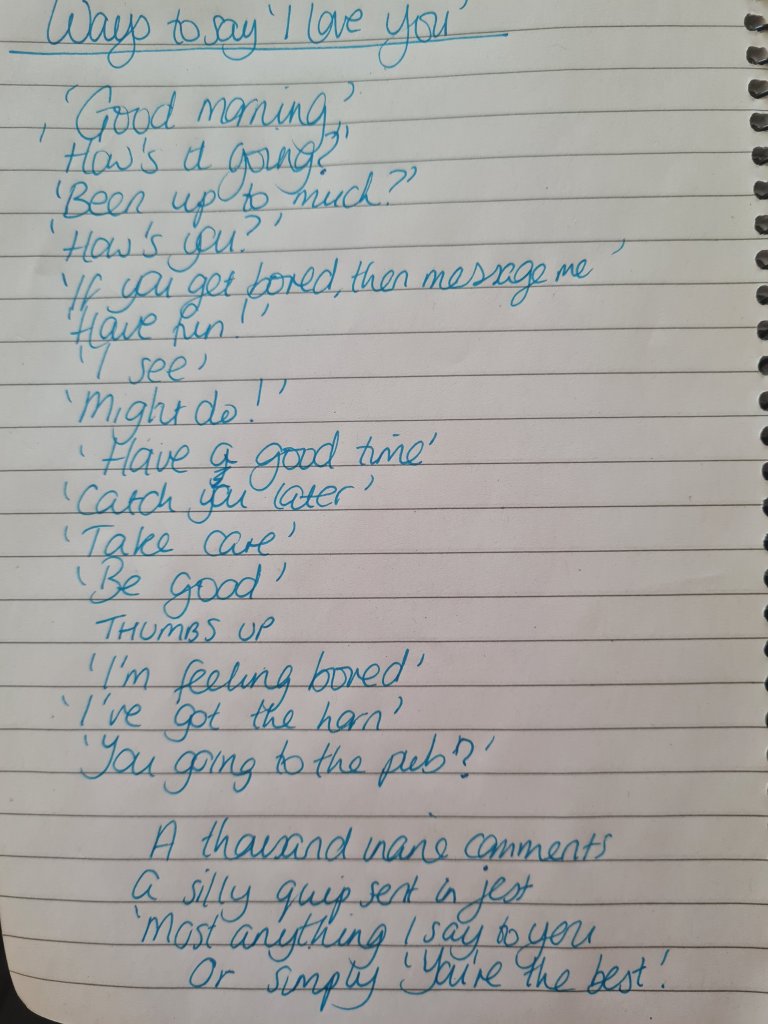 Ways to say 'I love you'
'Good morning,'
'How's it going?'
'Been up to much?'
'How's you?'
'If you get bored, then message me'
'Have fun!'
'I see'
'Might do!'
'Have a good time'
'Catch you later'
'Take care'
'Be good'
THUMBS UP
'I'm feeling bored'
'I've got the horn'
'You going to the pub?'
A thousand inane comments
A silly quip sent in jest
'Most anything I say to you
Or simply 'You're the best!'